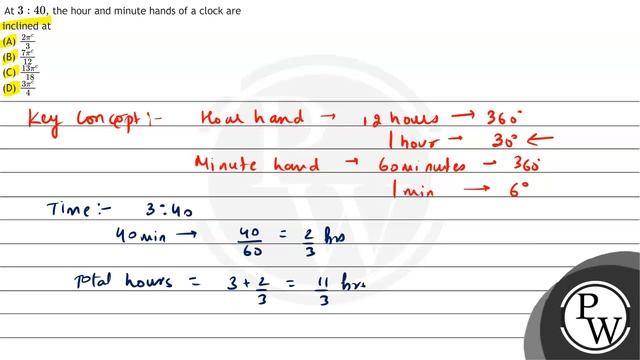 At 3 : 40, the hour and minute hands of a clock are
inclined at
(A) 2πᶜ/3
(B) 7πᶜ/12
(C) 13πᶜ/18
(D) 3πᶜ/4
Key Concept :- Hour hand → 12 hours → 360°
1 hour → 30° ←
Minute hand → 60 minutes → 360°
1 min → 6°
Time :- 3:40
40 min → 40/60 = 2/3 hrs
Total hours = 3 + 2/3 = 11/3 hrs
P
W